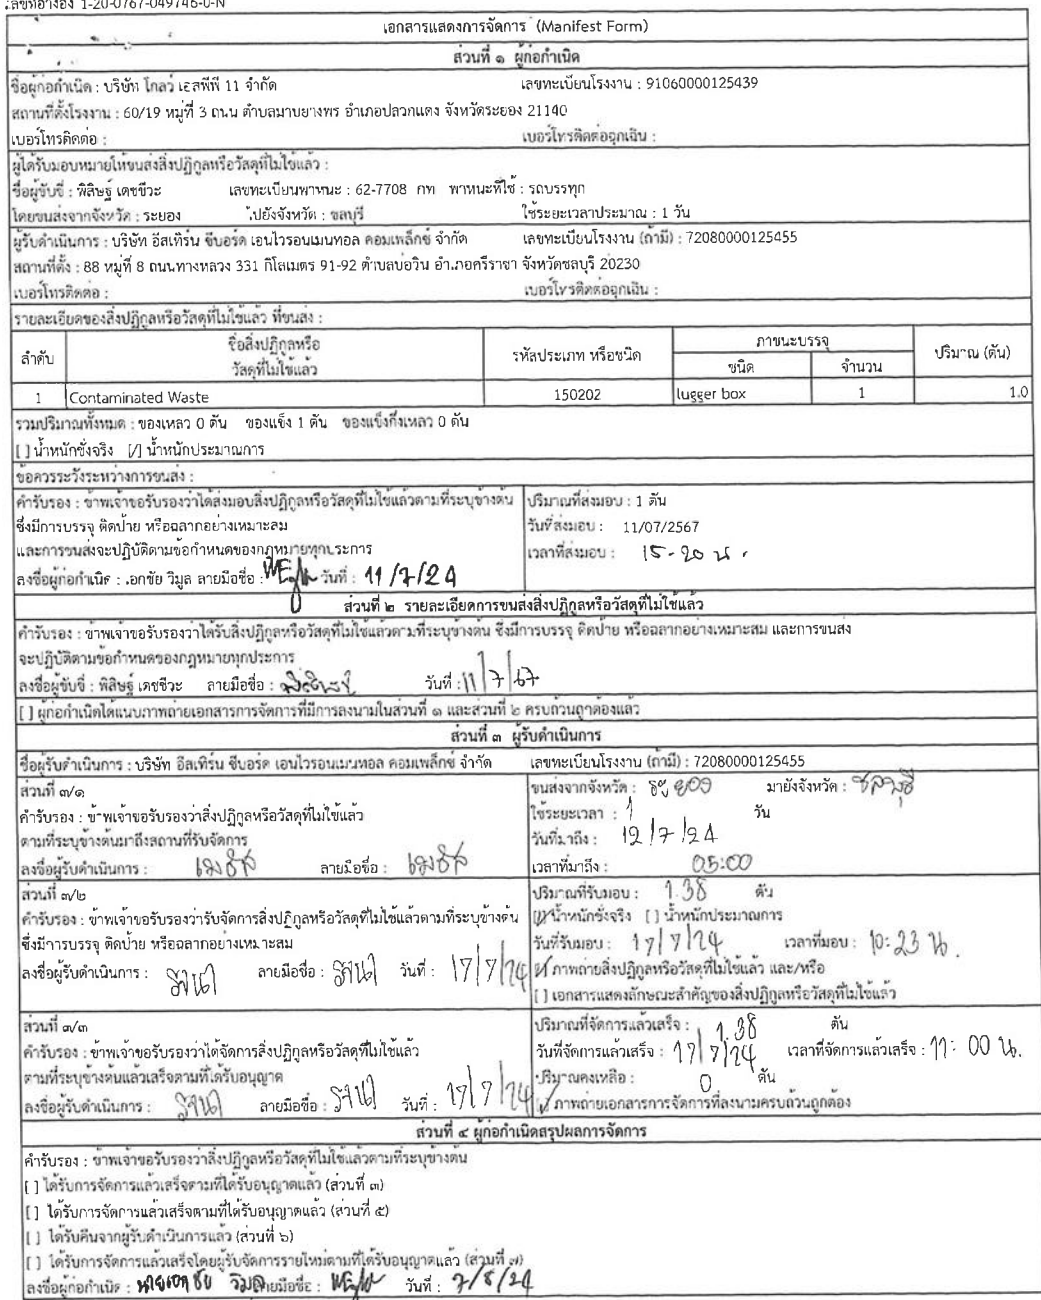 เลขที่อ้างอิง 1-20-0767-049746-0-N
เอกสารแสดงการจัดการ (Manifest Form)
ส่วนที่ ๑ ผู้ก่อกำเนิด
ชื่อผู้ก่อกำเนิด : บริษัท โกลว์ เอสพีพี 11 จำกัด เลขทะเบียนโรงงาน : 91060000125439
สถานที่ตั้งโรงงาน : 60/19 หมู่ที่ 3 ถนน ตำบลมาบยางพร อำเภอปลวกแดง จังหวัดระยอง 21140
เบอร์โทรติดต่อ : เบอร์โทรติดต่อฉุกเฉิน :
ผู้ได้รับมอบหมายให้ขนส่งสิ่งปฏิกูลหรือวัสดุที่ไม่ใช้แล้ว :
ชื่อผู้ขับขี่ : พิสิษฐ์ เดชชีวะ เลขทะเบียนพาหนะ : 62-7708 กท พาหนะที่ใช้ : รถบรรทุก
โดยขนส่งจากจังหวัด : ระยอง ไปยังจังหวัด : ชลบุรี ใช้ระยะเวลาประมาณ : 1 วัน
ผู้รับดำเนินการ : บริษัท อีสเทิร์น ซีบอร์ด เอนไวรอนเมนทอล คอมเพล็กซ์ จำกัด เลขทะเบียนโรงงาน (ถ้ามี) : 72080000125455
สถานที่ตั้ง : 88 หมู่ที่ 8 ถนนทางหลวง 331 กิโลเมตร 91-92 ตำบลบ่อวิน อำเภอศรีราชา จังหวัดชลบุรี 20230
เบอร์โทรติดต่อ : เบอร์โทรติดต่อฉุกเฉิน :
รายละเอียดของสิ่งปฏิกูลหรือวัสดุที่ไม่ใช้แล้ว ที่ขนส่ง :
ลำดับ ชื่อสิ่งปฏิกูลหรือ วัสดุที่ไม่ใช้แล้ว รหัสประเภท หรือชนิด ภาชนะบรรจุ ปริมาณ (ตัน)
ชนิด จำนวน
1 Contaminated Waste 150202 lugger box 1 1.0
รวมปริมาณทั้งหมด : ของเหลว 0 ตัน ของแข็ง 1 ตัน ของแข็งกึ่งเหลว 0 ตัน
[ ] น้ำหนักชั่งจริง [/] น้ำหนักประมาณการ
ข้อควรระวังระหว่างการขนส่ง :
คำรับรอง : ข้าพเจ้าขอรับรองว่าได้ส่งมอบสิ่งปฏิกูลหรือวัสดุที่ไม่ใช้แล้วตามที่ระบุข้างต้น ปริมาณที่ส่งมอบ : 1 ตัน
ซึ่งมีการบรรจุ ติดป้าย หรือฉลากอย่างเหมาะสม วันที่ส่งมอบ : 11/07/2567
และการขนส่งจะปฏิบัติตามข้อกำหนดของกฎหมายทุกประการ เวลาที่ส่งมอบ : 15-20 น.
ลงชื่อผู้ก่อกำเนิด : เอกชัย วิมูล ลายมือชื่อ : วันที่ : 11/7/24
ส่วนที่ ๒ รายละเอียดการขนส่งสิ่งปฏิกูลหรือวัสดุที่ไม่ใช้แล้ว
คำรับรอง : ข้าพเจ้าขอรับรองว่าได้รับสิ่งปฏิกูลหรือวัสดุที่ไม่ใช้แล้วตามที่ระบุข้างต้น ซึ่งมีการบรรจุ ติดป้าย หรือฉลากอย่างเหมาะสม และการขนส่ง
จะปฏิบัติตามข้อกำหนดของกฎหมายทุกประการ
ลงชื่อผู้ขับขี่ : พิสิษฐ์ เดชชีวะ ลายมือชื่อ : วันที่ : 11/7/67
[ ] ผู้ก่อกำเนิดได้แนบภาพถ่ายเอกสารการจัดการที่มีการลงนามในส่วนที่ ๑ และส่วนที่ ๒ ครบถ้วนถูกต้องแล้ว
ส่วนที่ ๓ ผู้รับดำเนินการ
ชื่อผู้รับดำเนินการ : บริษัท อีสเทิร์น ซีบอร์ด เอนไวรอนเมนทอล คอมเพล็กซ์ จำกัด เลขทะเบียนโรงงาน (ถ้ามี) : 72080000125455
ส่วนที่ ๓/๑ ขนส่งจากจังหวัด : ระยอง มายังจังหวัด : ชลบุรี
คำรับรอง : ข้าพเจ้าขอรับรองว่าสิ่งปฏิกูลหรือวัสดุที่ไม่ใช้แล้ว ใช้ระยะเวลา : 1 วัน
ตามที่ระบุข้างต้นมาถึงสถานที่รับจัดการ วันที่มาถึง : 12/7/24
ลงชื่อผู้รับดำเนินการ : ลายมือชื่อ : เวลาที่มาถึง : 05:00
ส่วนที่ ๓/๒ ปริมาณที่รับมอบ : 1.38 ตัน
คำรับรอง : ข้าพเจ้าขอรับรองว่ารับจัดการสิ่งปฏิกูลหรือวัสดุที่ไม่ใช้แล้วตามที่ระบุข้างต้น [/] น้ำหนักชั่งจริง [ ] น้ำหนักประมาณการ
ซึ่งมีการบรรจุ ติดป้าย หรือฉลากอย่างเหมาะสม วันที่รับมอบ : 17/7/24 เวลาที่มอบ : 10:23 น.
ลงชื่อผู้รับดำเนินการ : ลายมือชื่อ : วันที่ : 17/7/24 [/] ภาพถ่ายสิ่งปฏิกูลหรือวัสดุที่ไม่ใช้แล้ว และ/หรือ
[ ] เอกสารแสดงลักษณะสำคัญของสิ่งปฏิกูลหรือวัสดุที่ไม่ใช้แล้ว
ส่วนที่ ๓/๓ ปริมาณที่จัดการแล้วเสร็จ : 1.38 ตัน
คำรับรอง : ข้าพเจ้าขอรับรองว่าได้จัดการสิ่งปฏิกูลหรือวัสดุที่ไม่ใช้แล้ว วันที่จัดการแล้วเสร็จ : 17/7/24 เวลาที่จัดการแล้วเสร็จ : 11:00 น.
ตามที่ระบุข้างต้นแล้วเสร็จตามที่ได้รับอนุญาต ปริมาณคงเหลือ : 0 ตัน
ลงชื่อผู้รับดำเนินการ : ลายมือชื่อ : วันที่ : 17/7/24 [/] ภาพถ่ายเอกสารการจัดการที่ลงนามครบถ้วนถูกต้อง
ส่วนที่ ๔ ผู้ก่อกำเนิดสรุปผลการจัดการ
คำรับรอง : ข้าพเจ้าขอรับรองว่าสิ่งปฏิกูลหรือวัสดุที่ไม่ใช้แล้วตามที่ระบุข้างต้น
[ ] ได้รับการจัดการแล้วเสร็จตามที่ได้รับอนุญาตแล้ว (ส่วนที่ ๓)
[ ] ได้รับการจัดการแล้วเสร็จตามที่ได้รับอนุญาตแล้ว (ส่วนที่ ๕)
[ ] ได้รับคืนจากผู้รับดำเนินการแล้ว (ส่วนที่ ๖)
[ ] ได้รับการจัดการแล้วเสร็จโดยผู้รับจัดการรายใหม่ตามที่ได้รับอนุญาตแล้ว (ส่วนที่ ๗)
ลงชื่อผู้ก่อกำเนิด : นายเอกชัย วิมูล ลายมือชื่อ : วันที่ : 7/8/24